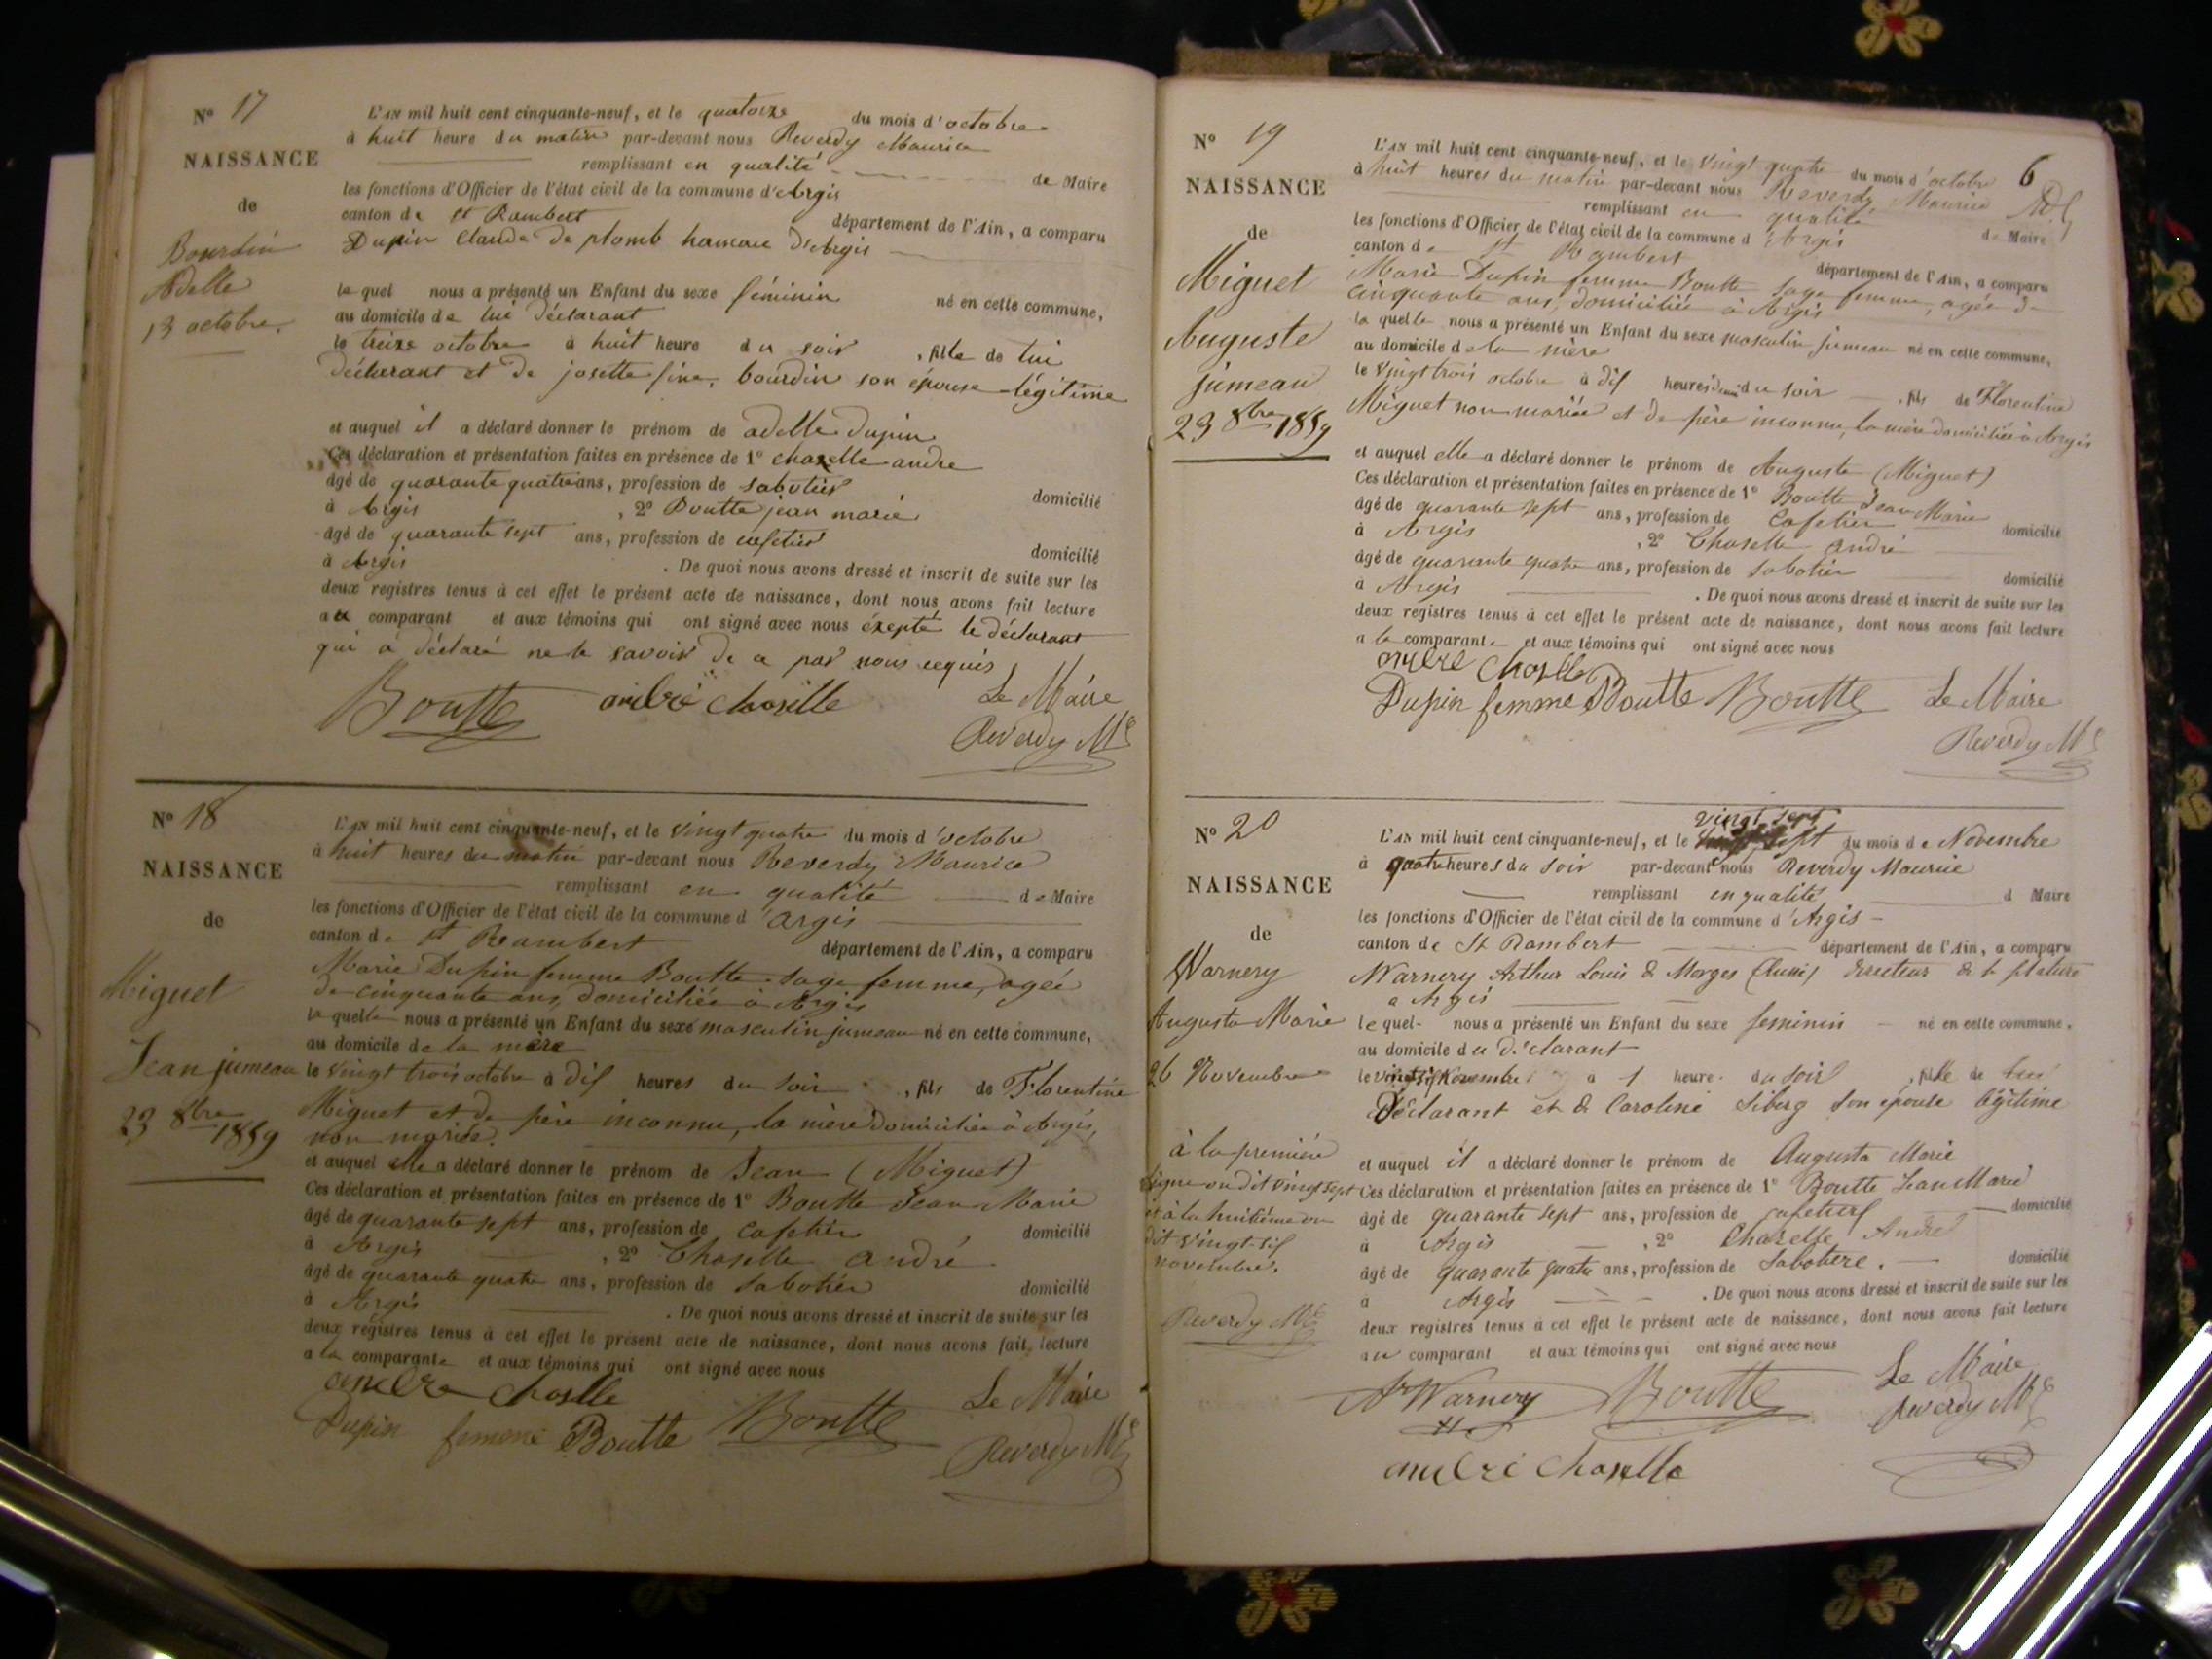 N° 17
NAISSANCE
de
Bourdin
Adelle
13 octobre.
L'AN mil huit cent cinquante-neuf, et le quatorze du mois d'octobre
à huit heure du matin par-devant nous Reverdy Maurice
remplissant en qualité de Maire
les fonctions d'Officier de l'état civil de la commune d'Argis
canton de St Rambert département de l'Ain, a comparu
Dupin Claude de plomb hameau d'Argis
le quel nous a présenté un Enfant du sexe féminin né en cette commune,
au domicile de lui déclarant
le treize octobre à huit heure du soir, fille de lui
déclarant et de josette fine, bourdin son épouse légitime
et auquel il a déclaré donner le prénom de adelle dupin
Ces déclaration et présentation faites en présence de 1° chazelle andre
âgé de quarante quatre ans, profession de sabotier domicilié
à Argis, 2° Boutte jean marie
âgé de quarante sept ans, profession de cafetier domicilié
à Argis. De quoi nous avons dressé et inscrit de suite sur les
deux registres tenus à cet effet le présent acte de naissance, dont nous avons fait lecture
au comparant et aux témoins qui ont signé avec nous éxepté le déclarant
qui a déclaré ne le savoir de ce par nous requis
Boutte andré chazelle Le Maire
Reverdy Mce
N° 18
NAISSANCE
de
Miguet
Jean jumeau
23 8bre 1859
L'AN mil huit cent cinquante-neuf, et le vingt quatre du mois d'octobre
à huit heures du matin par-devant nous Reverdy Maurice
remplissant en qualité de Maire
les fonctions d'Officier de l'état civil de la commune d'Argis
canton de St Rambert département de l'Ain, a comparu
Marie Dupin femme Boutte sage femme, agée
de cinquante ans, domiciliée à Argis
la quelle nous a présenté un Enfant du sexe masculin jumeau né en cette commune,
au domicile de la mère
le vingt trois octobre à dix heures du soir, fils de Florentine
Miguet et de père inconnu, la mère domiciliée à Argis,
non mariée.
et auquel elle a déclaré donner le prénom de Jean (Miguet)
Ces déclaration et présentation faites en présence de 1° Boutte Jean Marie
âgé de quarante sept ans, profession de cafetier domicilié
à Argis, 2° Chazelle andré
âgé de quarante quatre ans, profession de sabotier domicilié
à Argis. De quoi nous avons dressé et inscrit de suite sur les
deux registres tenus à cet effet le présent acte de naissance, dont nous avons fait lecture
a la comparante et aux témoins qui ont signé avec nous
andre chazelle Le Maire
Dupin femme Boutte Boutte Reverdy Mce
N° 19
NAISSANCE
de
Miguet
Auguste
jumeau
23 8bre 1859
6
L'AN mil huit cent cinquante-neuf, et le vingt quatre du mois d'octobre
à huit heures du matin par-devant nous Reverdy Maurice
remplissant en qualité de Maire
les fonctions d'Officier de l'état civil de la commune d'Argis
canton de St Rambert département de l'Ain, a comparu
Marie Dupin femme Boutte sage femme, agée de
cinquante ans, domiciliée à Argis
la quelle nous a présenté un Enfant du sexe masculin jumeau né en cette commune,
au domicile de la mère
le vingt trois octobre à dix heures du soir, fils de Florentine
Miguet non mariée et de père inconnu, la mère domiciliée à Argis
et auquel elle a déclaré donner le prénom de Auguste (Miguet)
Ces déclaration et présentation faites en présence de 1° Boutte Jean Marie
âgé de quarante sept ans, profession de Cafetier domicilié
à Argis, 2° Chazelle andré
âgé de quarante quatre ans, profession de sabotier domicilié
à Argis. De quoi nous avons dressé et inscrit de suite sur les
deux registres tenus à cet effet le présent acte de naissance, dont nous avons fait lecture
a la comparante et aux témoins qui ont signé avec nous
andre chazelle
Dupin femme Boutte Boutte Le Maire
Reverdy Mce
N° 20
NAISSANCE
de
Warnery
Augusta Marie
26 Novembre
à la première
ligne on dit vingt sept
et à la huitième on
dit vingt-six
novembre.
Reverdy Mce
vingt sept
L'AN mil huit cent cinquante-neuf, et le sept du mois de Novembre
à quatre heures du soir par-devant nous Reverdy Maurice
remplissant en qualité d Maire
les fonctions d'Officier de l'état civil de la commune d'Argis
canton de St Rambert département de l'Ain, a comparu
Warnery Arthur Louis de Morges (Suisse) directeur de la filature
a Argis
le quel nous a présenté un Enfant du sexe feminin né en cette commune,
au domicile du déclarant
le vingt six Novembre à 1 heure du soir, fille de lui
Déclarant et de Caroline Siberg son épouse légitime
et auquel il a déclaré donner le prénom de Augusta Marie
Ces déclaration et présentation faites en présence de 1° Boutte Jean Marie
âgé de quarante sept ans, profession de cafetier domicilié
à Argis, 2° Chazelle André
âgé de quarante quatre ans, profession de sabotiere. domicilié
à Argis. De quoi nous avons dressé et inscrit de suite sur les
deux registres tenus à cet effet le présent acte de naissance, dont nous avons fait lecture
au comparant et aux témoins qui ont signé avec nous
Ar Warnery Boutte Le Maire
Reverdy Mce
andré chazelle